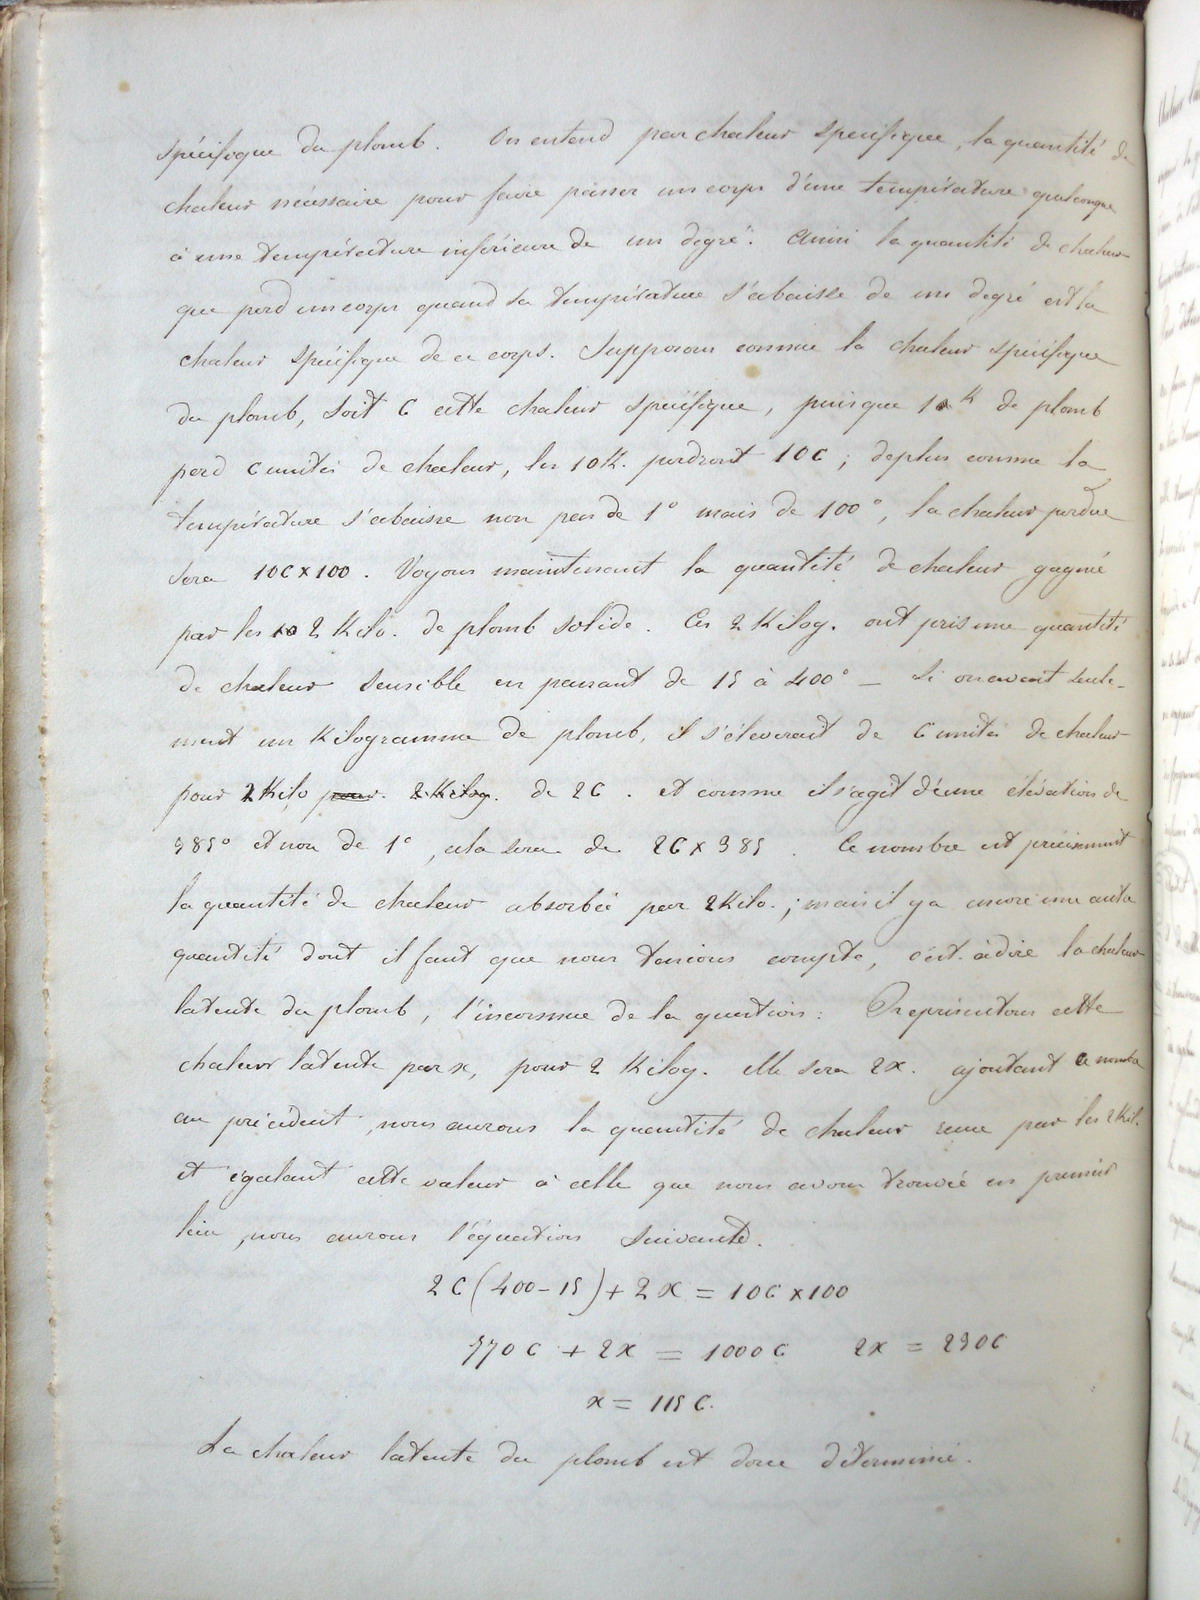 spécifique du plomb. On entend par chaleur specifique, la quantité de
chaleur nécessaire pour faire passer un corps d'une température quelconque
à une température inférieure de un degré. Ainsi la quantité de chaleur
que perd un corps quand sa température s'abaisse de un degré est la
chaleur spécifique de ce corps. Supposons connue la chaleur spécifique
du plomb, soit C cette chaleur spécifique, puisque 1 K de plomb
perd C unités de chaleur, les 10 K. perdront 10C ; de plus comme la
température s'abaisse non pas de 1° mais de 100°, la chaleur perdue
sera 10C x 100. Voyons maintenant la quantité de chaleur gagnée
par les 10 2 Kilo. de plomb solide. Ces 2 Kilog. ont pris une quantité
de chaleur sensible en passant de 15 à 400° — Si on avait seule-
ment un Kilogramme de plomb, il s'éleverait de C unités de chaleur
pour 2 Kilo pour. 2 Kilog. de 2C. et comme il s'agit d'une élévation de
385° et non de 1°, cela sera de 2C x 385. Ce nombre est précisement
la quantité de chaleur absorbée par 2 Kilo. ; mais il y a encore une autre
quantité dont il faut que nous tenions compte, c'est. à dire la chaleur
latente du plomb, l'inconnue de la question : Représentons cette
chaleur latente par x, pour 2 Kilog. elle sera 2x. ajoutant ce nombre
au précédent, nous aurons la quantité de chaleur reçue par les 2 Kil.
et égalant cette valeur à celle que nous avons trouvée en premier
lieu, nous aurons l'équation suivante.
2C (400 - 15) + 2x = 10C x 100
770C + 2x = 1000C 2x = 230C
x = 115C.
La chaleur latente du plomb est donc déterminée.